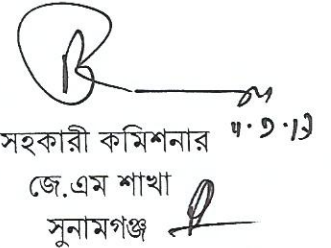 সহকারী কমিশনার
জে.এম শাখা
সুনামগঞ্জ